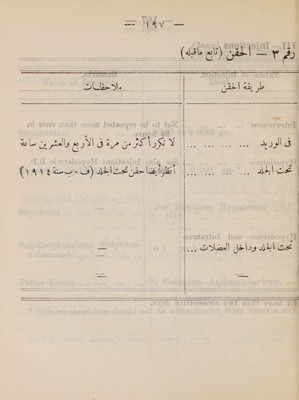 — ١٩٧ —
رقم ٣ — الحقن (تابع ماقبله)
طريقة الحقن
ملاحظات
فى الوريد ... ... ... ...
لا تكرر أكثر من مرة فى الأربع والعشرين ساعة
تحت الجلد ... ... ... ...
أنظر أيضا حقن تحت الجلد (ف . ب سنة ١٩١٤)
—
—
تحت الجلد وداخل العضلات ...
—
—
—